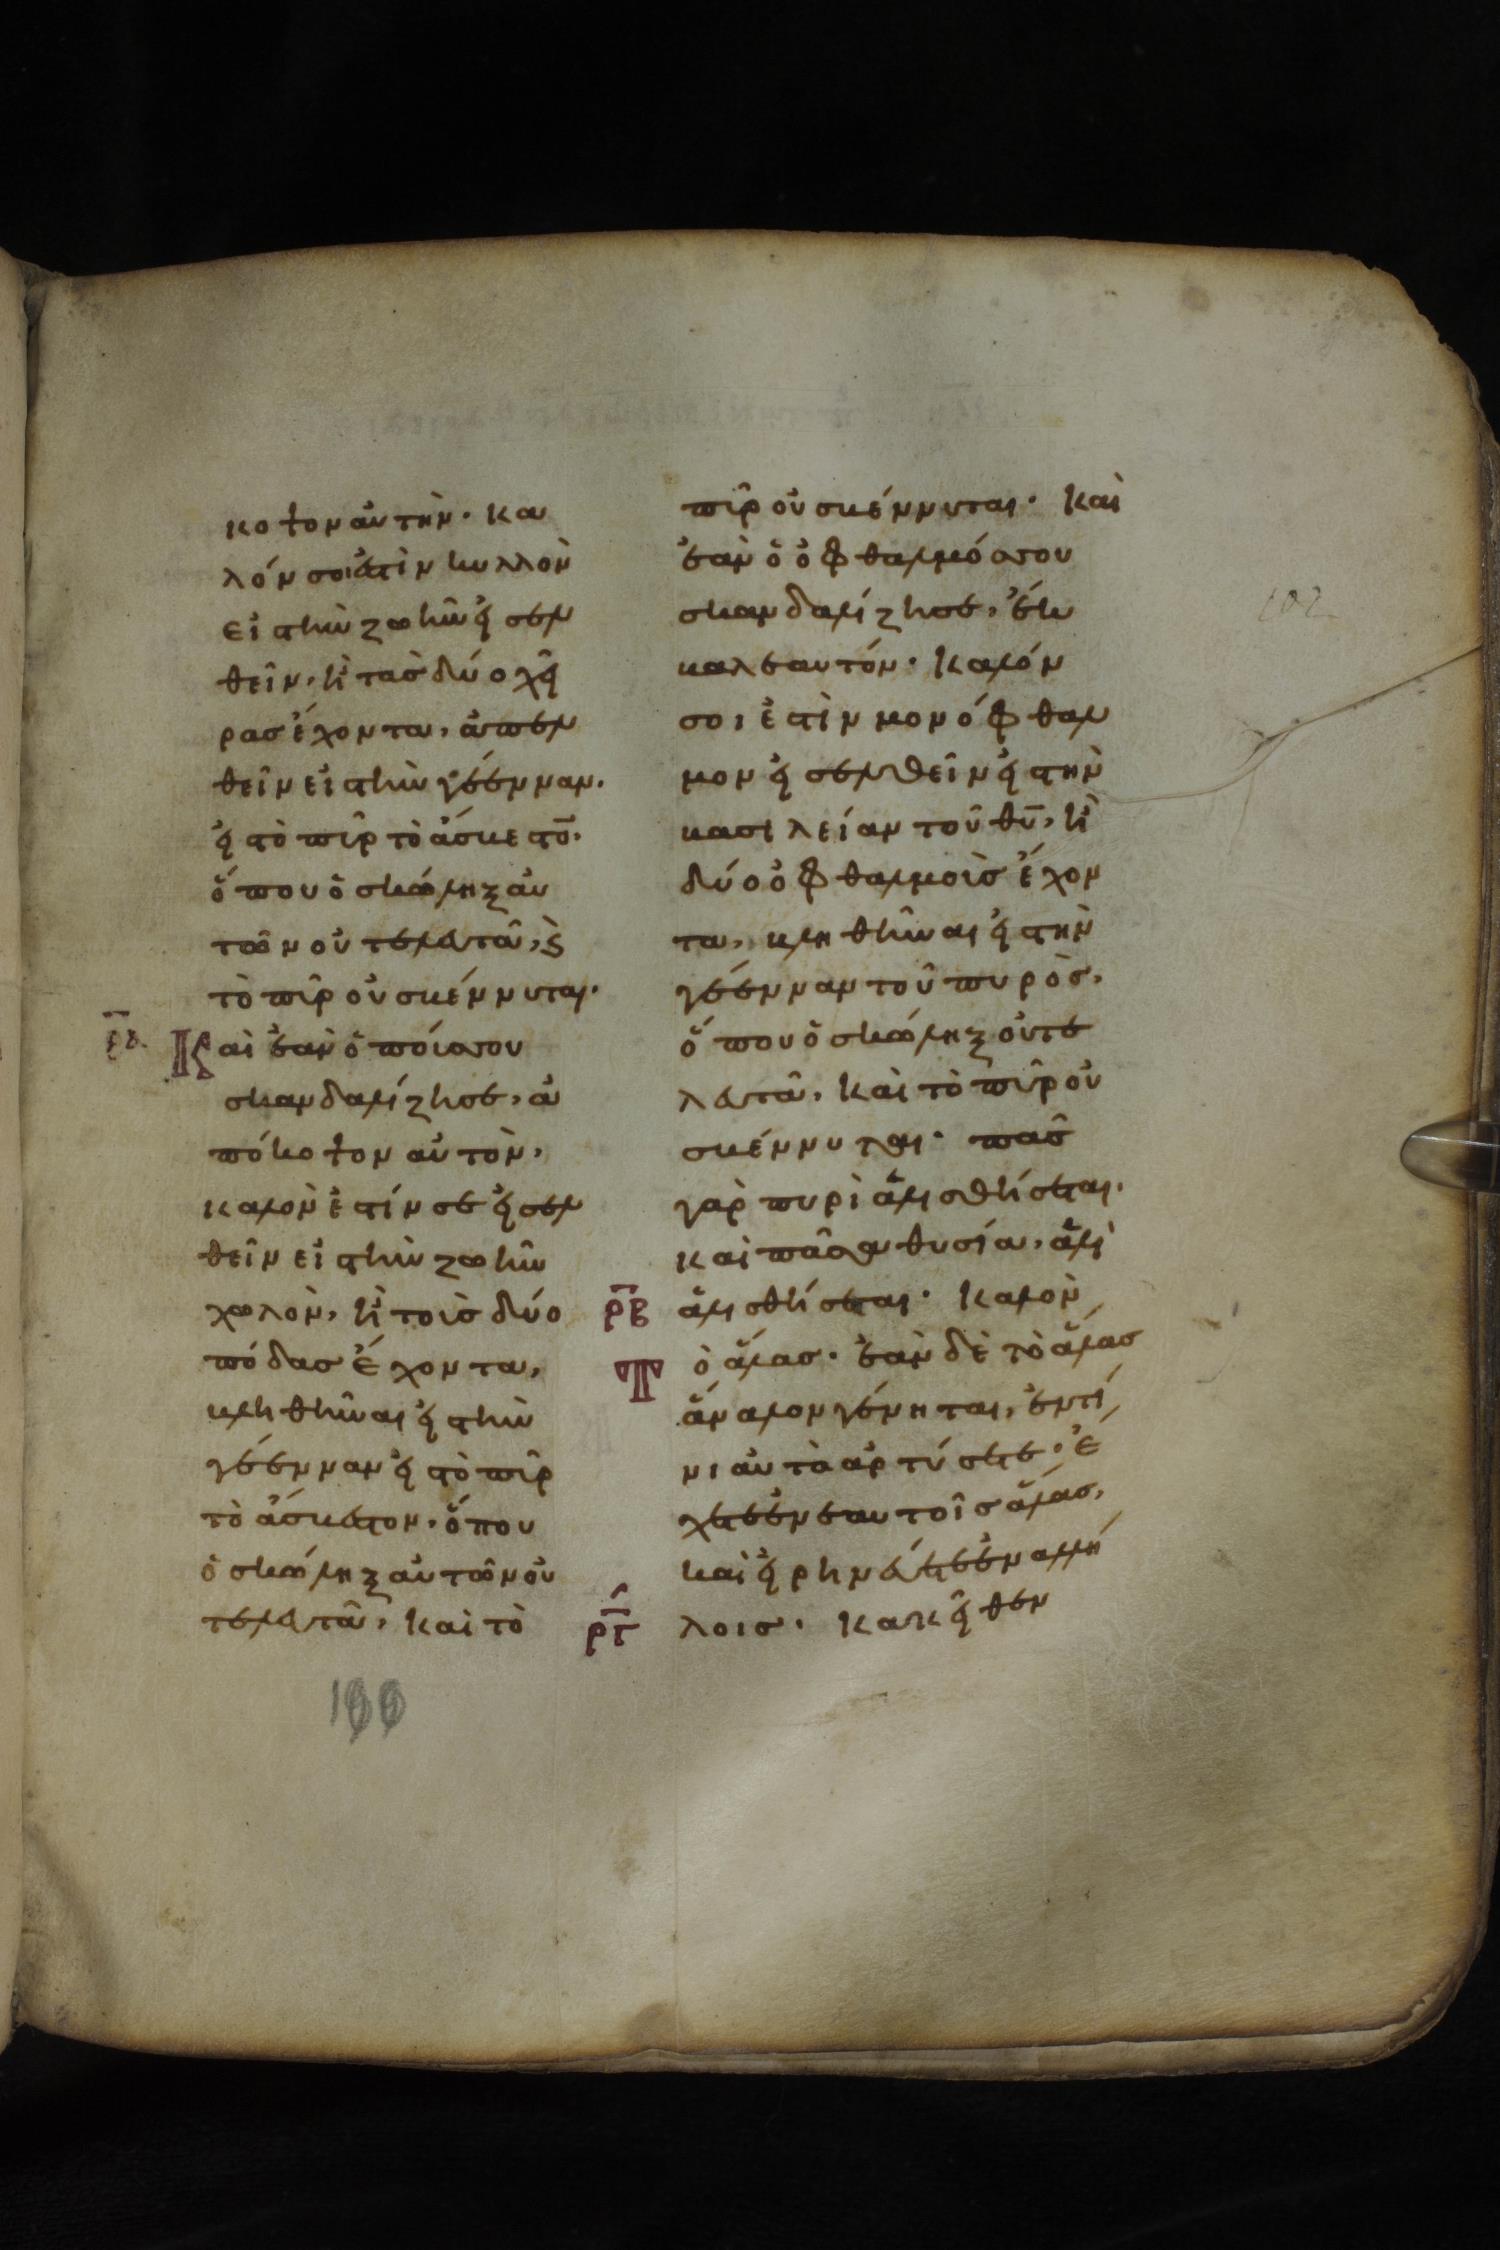 κοψον αὐτὴν· κα
λόν σοι ἐστὶν κυλλὸν
εἰς τὴν ζωὴν εἰσελ
θεῖν, ἢ τὰς δύο χεῖ
ρας ἔχοντα, ἀπελ
θεῖν εἰς τὴν γέενναν.
εἰς τὸ πῦρ τὸ ἄσβεστο̅.
ὅπου ὁ σκώληξ αὐ
τῶν οὐ τελευτᾶ, ϗ
τὸ πῦρ οὐ σβέννυται·
Καὶ ἐὰν ὁ πούς σου
σκανδαλίζη σε, ἀ
πόκοψον αὐτὸν,
καλὸν ἐστίν σε εἰσελ
θεῖν εἰς τὴν ζωὴν
χωλὸν, ἢ τοὺς δύο
πόδας ἔχοντα,
βληθῆναι εἰς τὴν
γέενναν εἰς τὸ πῦρ
τὸ ἄσβεστον. ὅπου
ὁ σκώληξ αὐτῶν οὐ
τελευτᾶ, καὶ τὸ
πῦρ οὐ σβέννυται· Καὶ
ἐὰν ὁ ὀφθαλμός σου
σκανδαλίζη σε, ἔκ
βαλε αυτόν· Καλόν
σοι ἐστὶν μονόφθαλ
μον εἰσελθεῖν εἰς τὴν
βασιλείαν τοῦ θυ̅, ἢ
δύο ὀφθαλμοὺς ἔχον
τα, βληθῆναι εἰς τὴν
γέενναν τοῦ πυρὸς,
ὅπου ὁ σκώληξ οὐ τε
λευτᾶ, καὶ τὸ πῦρ οὐ
σβέννυται· πᾶς
γὰρ πυρὶ ἁλισθήσεται.
καὶ πᾶσα θυσία, ἁλὶ
ρ̅β̅ ἁλισθήσεται· Καλὸν
Τὸ ἅλας· ἐὰν δὲ τὸ ἅλας
ἄναλον γένηται, ἐν τί
νι αὐτὸ ἀρτύσετε· ἔ
χετε ἐν εαυτοῖς ἅλας,
καὶ εἰρηνεύετε ἐν αλλή
ρ̅γ̅ λοις· Κακεῖθεν
100
102